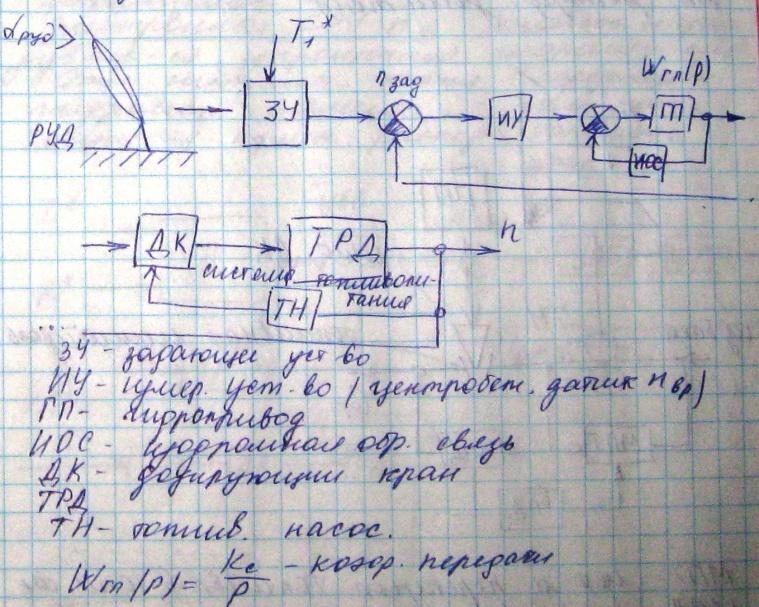 αруд
T₁*
РУД
ЗУ
nзад
ИУ
Wгп(р)
ГП
ИОС
ДК
ТРД
n
система топливопи-
тания
ТН
ЗУ - задающее уст-во
ИУ - измер. уст-во (центробеж. датчик nвр)
ГП - гидропривод
ИОС - изодромная обр. связь
ДК - дозирующий кран
ТРД
ТН - топлив. насос.
Wгп(р) = Kс/р - коэф. передачи